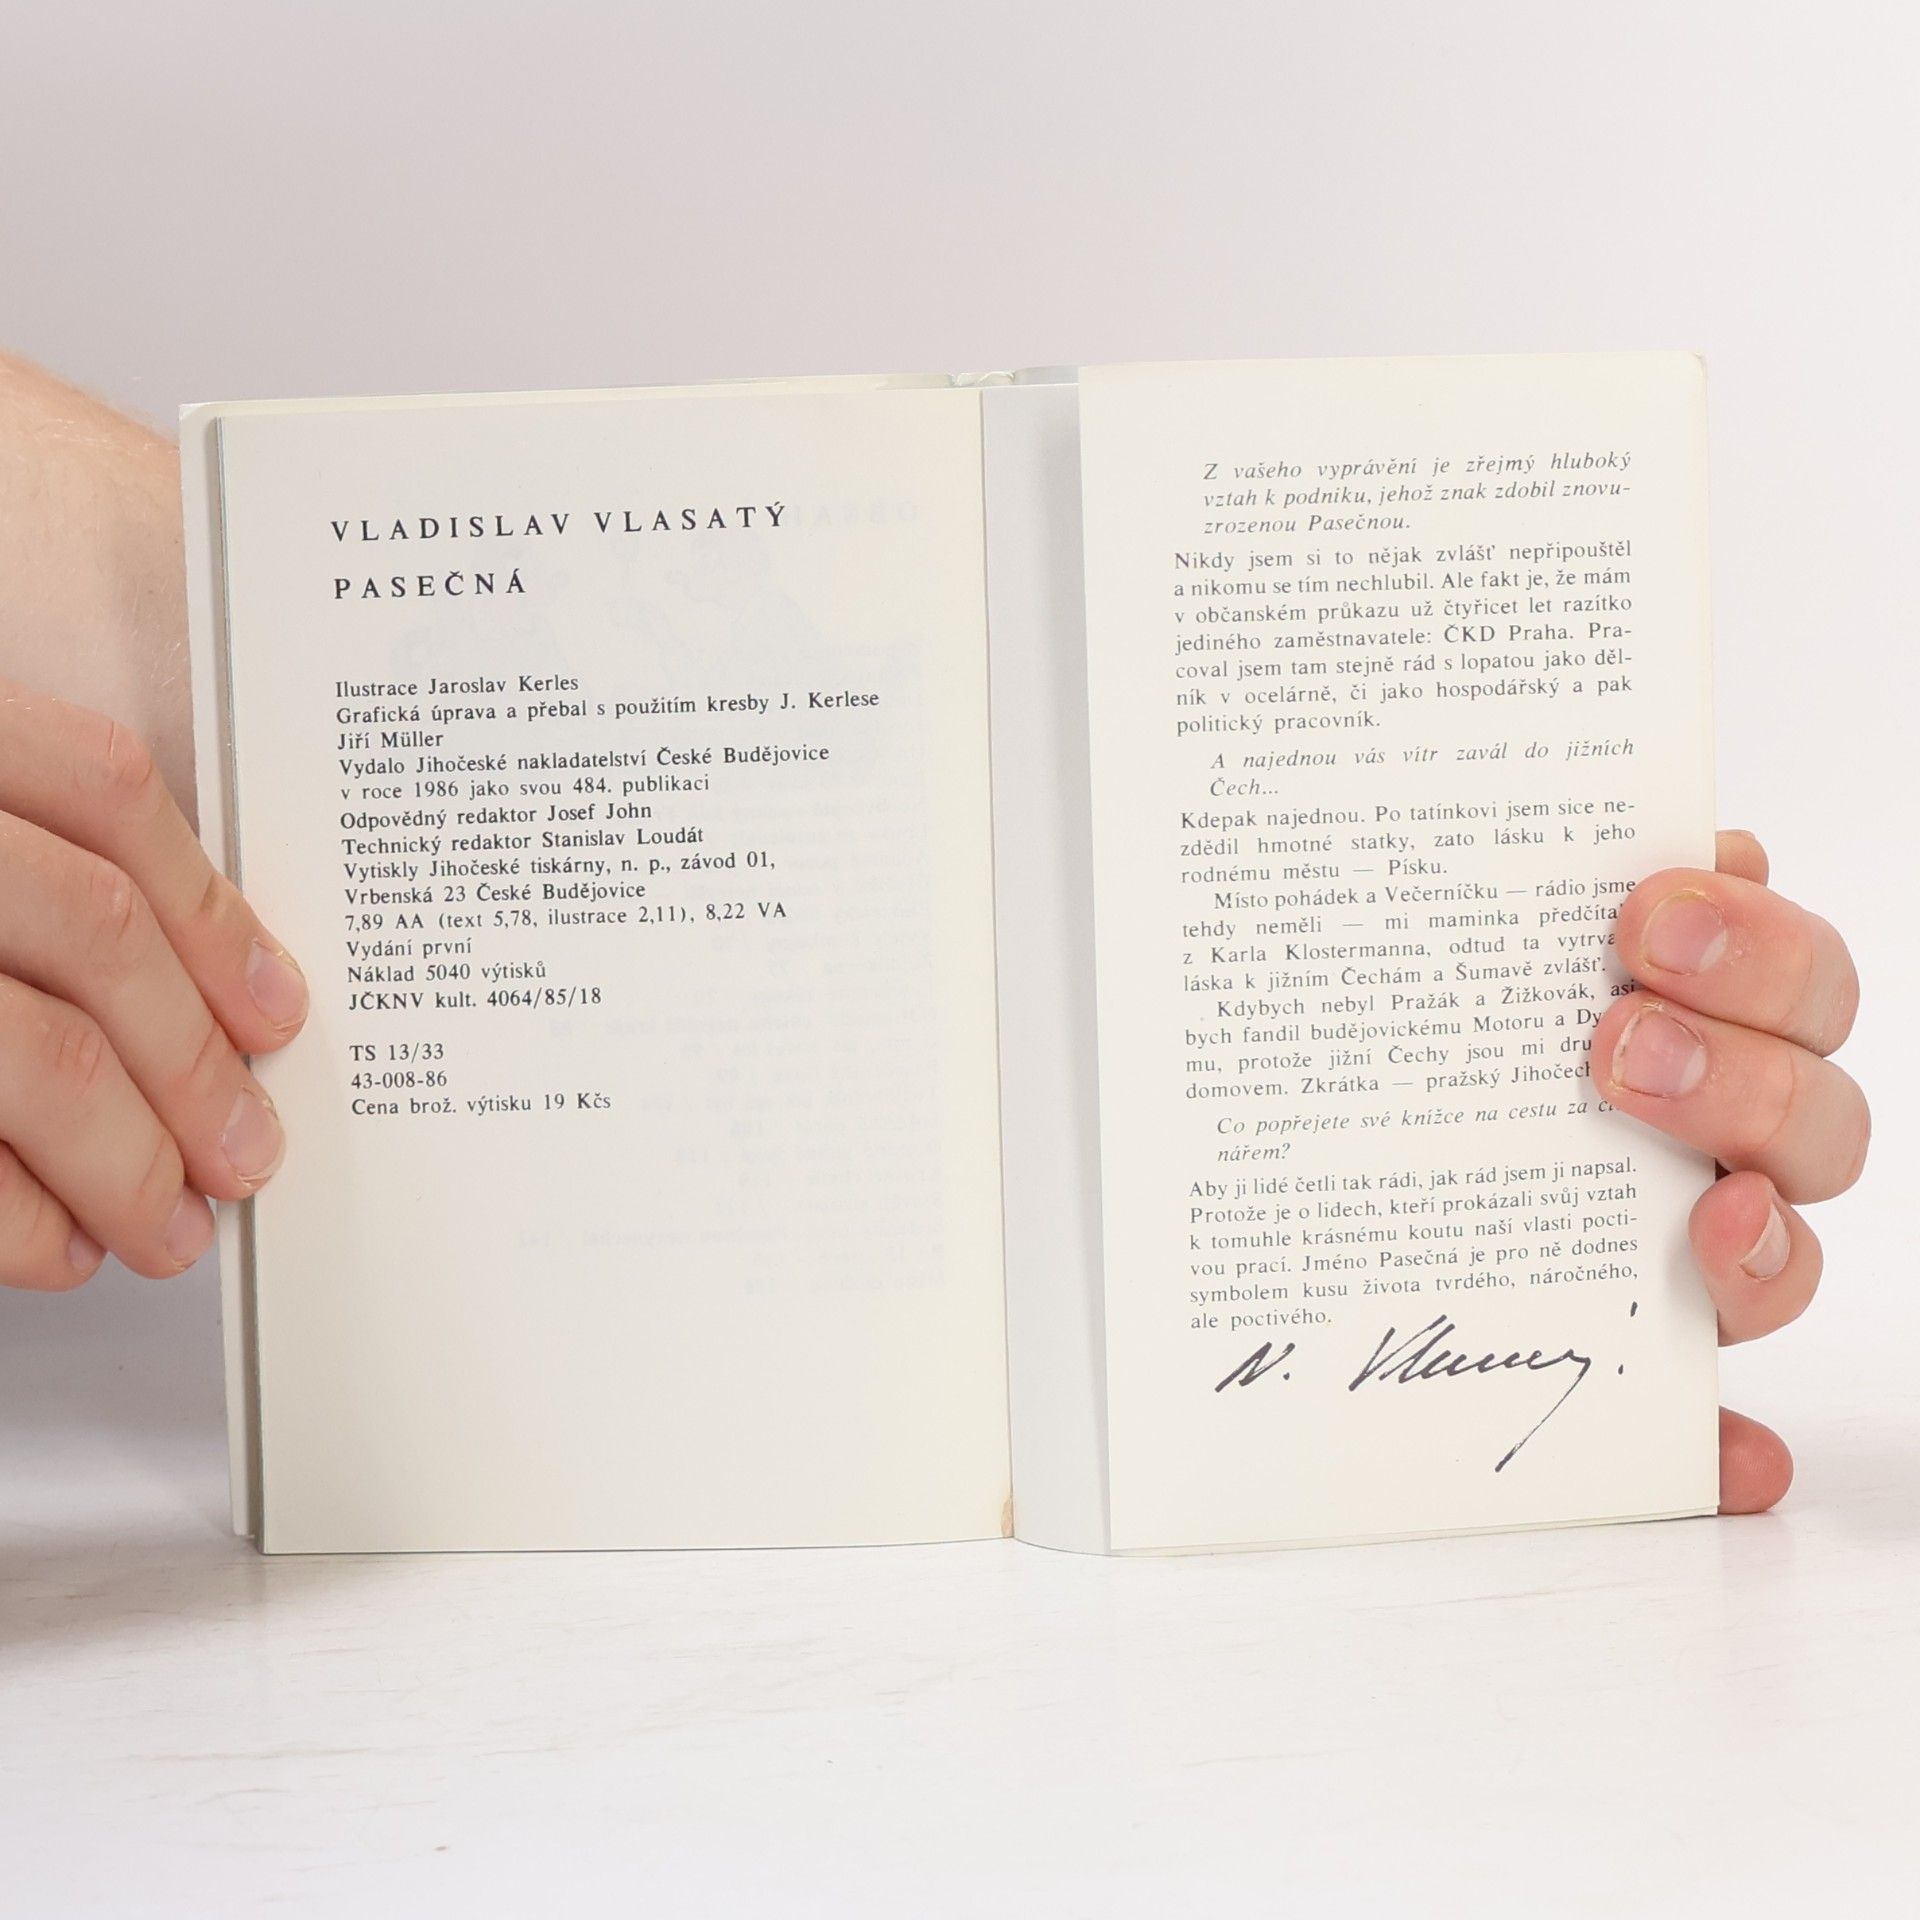 VLADISLAV VLASATÝ
PASEČNÁ
Ilustrace Jaroslav Kerles
Grafická úprava a přebal s použitím kresby J. Kerlese
Jiří Müller
Vydalo Jihočeské nakladatelství České Budějovice
v roce 1986 jako svou 484. publikaci
Odpovědný redaktor Josef John
Technický redaktor Stanislav Loudát
Vytiskly Jihočeské tiskárny, n. p., závod 01,
Vrbenská 23 České Budějovice
7,89 AA (text 5,78, ilustrace 2,11), 8,22 VA
Vydání první
Náklad 5040 výtisků
JČKNV kult. 4064/85/18
TS 13/33
43-008-86
Cena brož. výtisku 19 Kčs
Z vašeho vyprávění je zřejmý hluboký
vztah k podniku, jehož znak zdobil znovu-
zrozenou Pasečnou.
Nikdy jsem si to nějak zvlášť nepřipouštěl
a nikomu se tím nechlubil. Ale fakt je, že mám
v občanském průkazu už čtyřicet let razítko
jediného zaměstnavatele: ČKD Praha. Pra-
coval jsem tam stejně rád s lopatou jako děl-
ník v ocelárně, či jako hospodářský a pak
politický pracovník.
A najednou vás vítr zavál do jižních
Čech...
Kdepak najednou. Po tatínkovi jsem sice ne-
zdědil hmotné statky, zato lásku k jeho
rodnému městu — Písku.
Místo pohádek a Večerníčku — rádio jsme
tehdy neměli — mi maminka
z Karla Klostermanna, odtud ta
láska k jižním Čechám a Šumavě zvlášť.
Kdybych nebyl Pražák a Žižkovák, asi
bych fandil budějovickému Motoru a
mu, protože jižní Čechy jsou mi
domovem. Zkrátka — pražský
Co popřejete své knížce na cestu za
nářem?
Aby ji lidé četli tak rádi, jak rád jsem ji napsal.
Protože je o lidech, kteří prokázali svůj vztah
k tomuhle krásnému koutu naší vlasti pocti-
vou prací. Jméno Pasečná je pro ně dodnes
symbolem kusu života tvrdého, náročného,
ale poctivého.